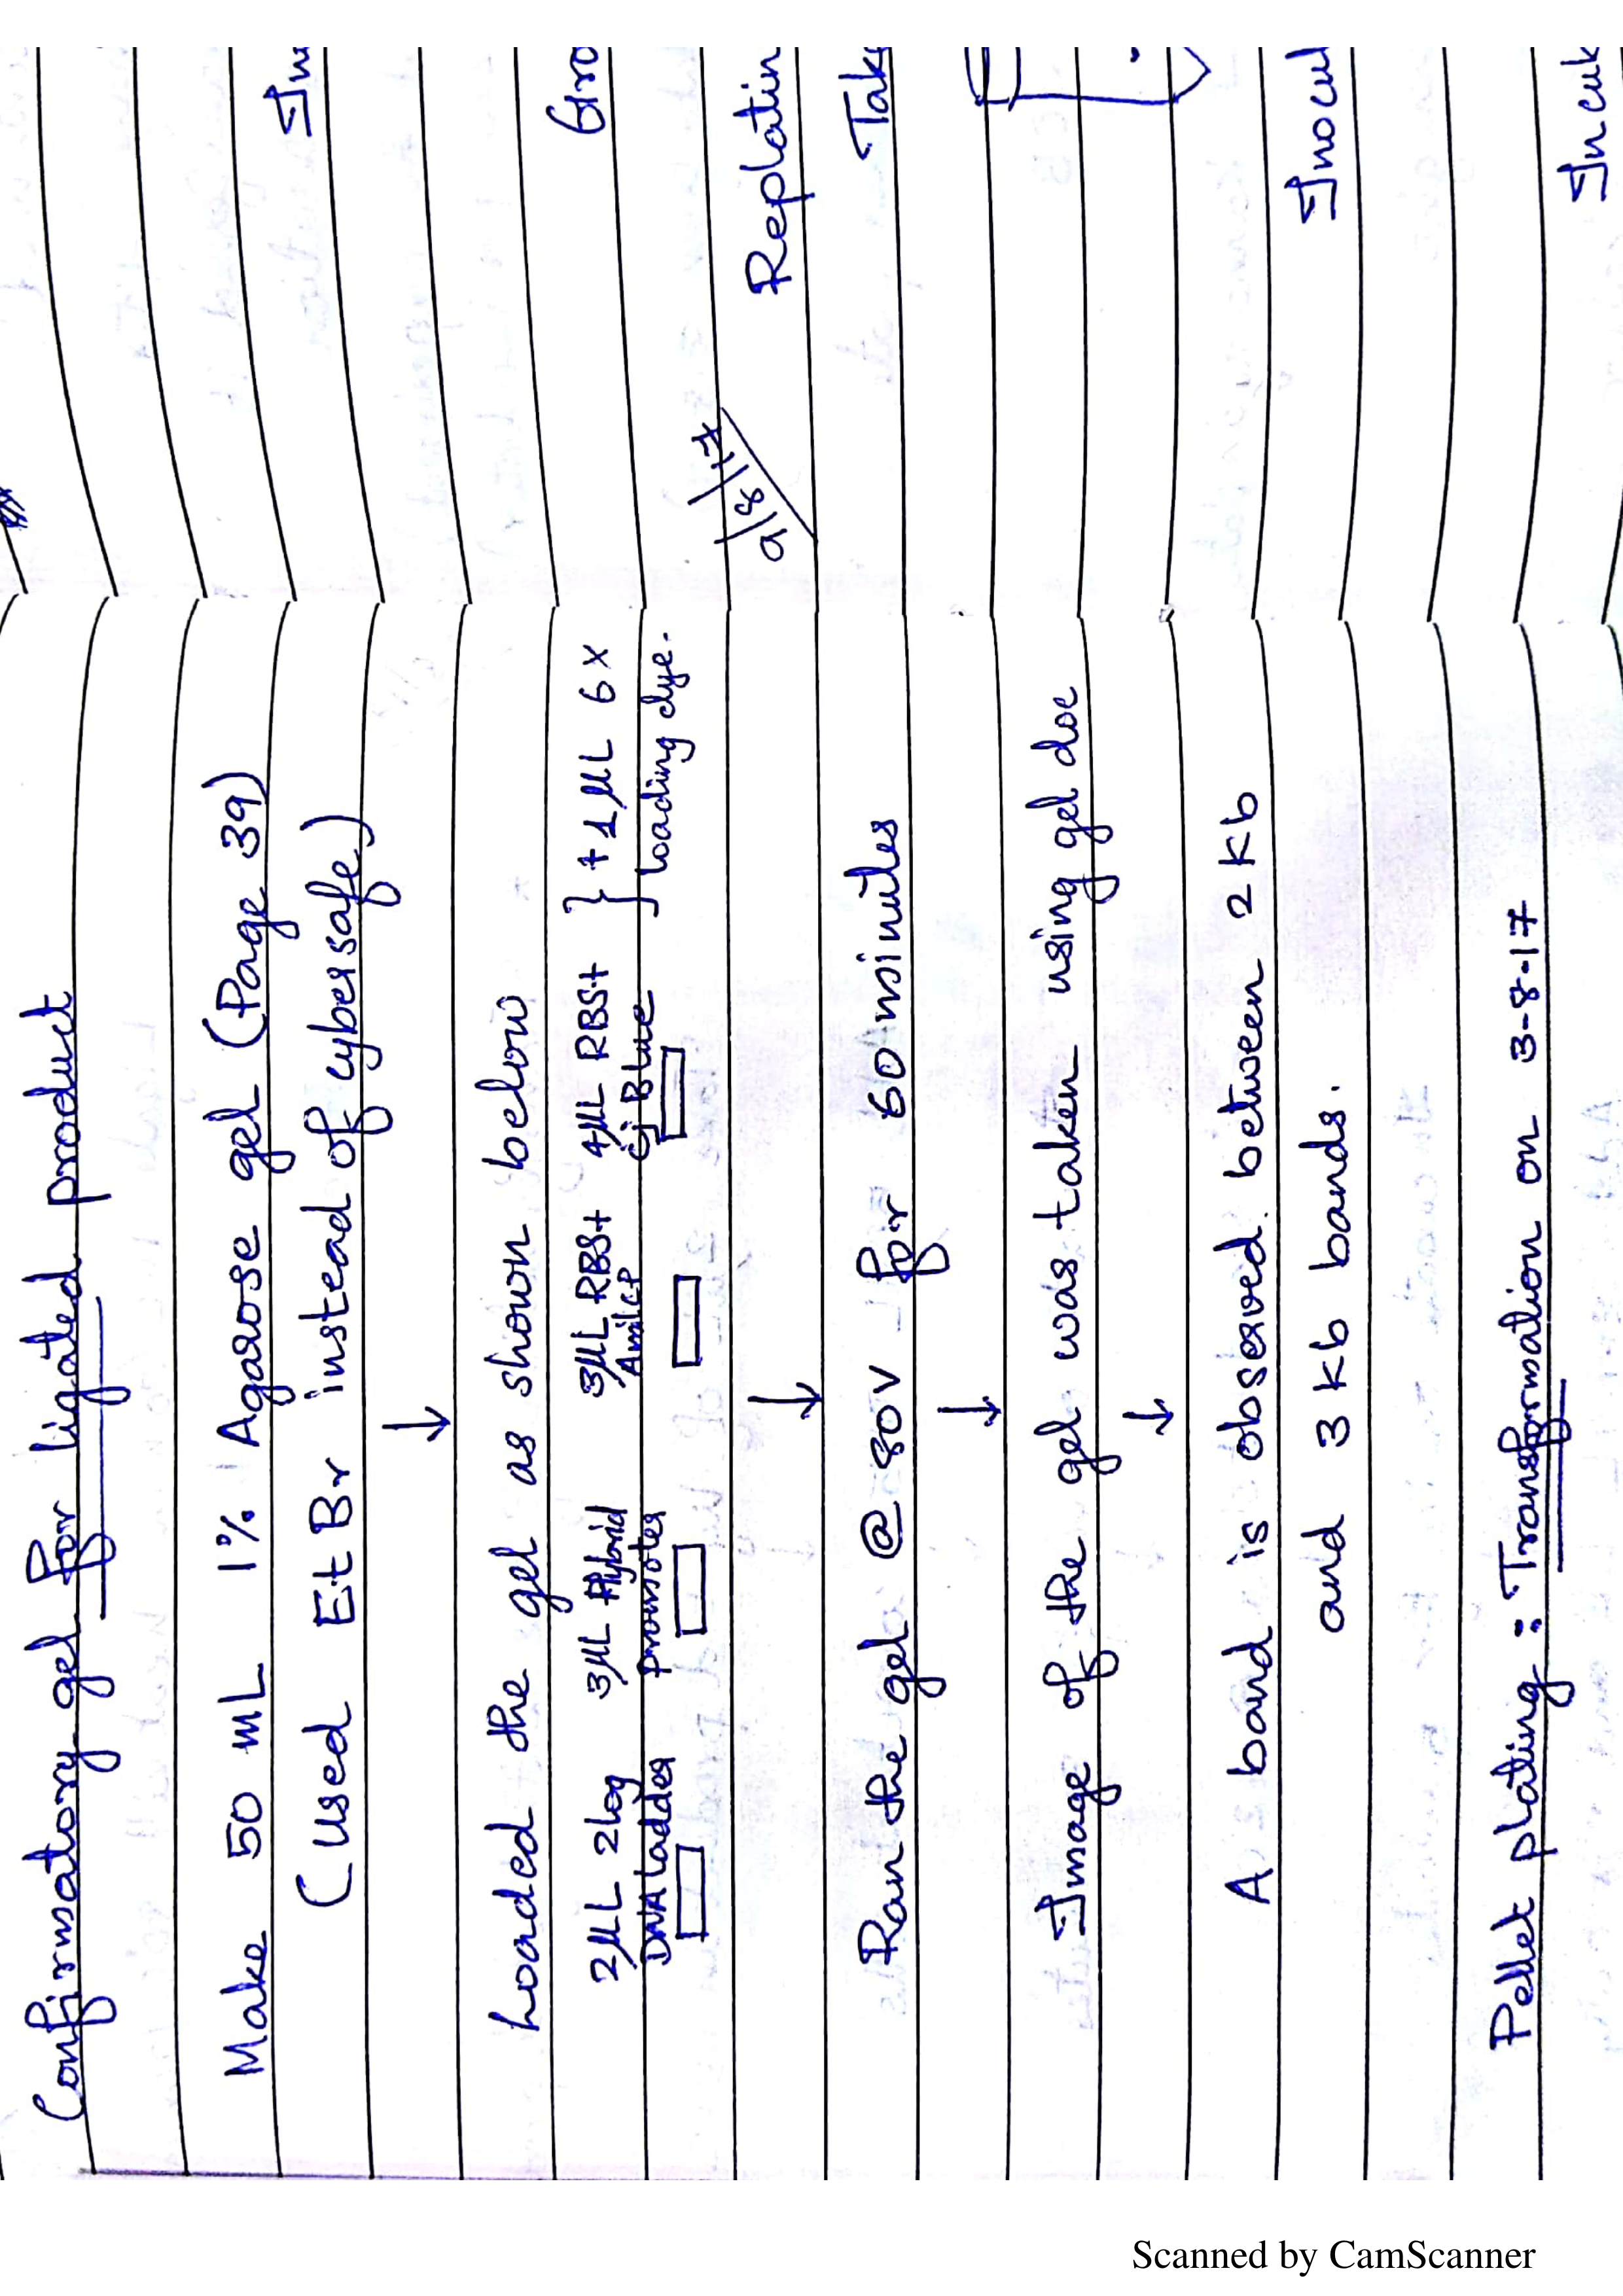 Confirmatory gel for ligated product
Make 50 mL 1% Agarose gel (Page 39)
(Used EtBr instead of cybersafe)
↓
Loaded the gel as shown below
2µL 2log DNA ladder
3µL Hybrid promoter
3µL RBS+ AmilCP
4µL RBS+ cjBlue
} +1µL 6X loading dye.
↓
Ran the gel @ 80V for 60 minutes
↓
Image of the gel was taken using gel doc
↓
A band is observed between 2 kb
and 3 kb bands.
Pellet plating : Transformation on 3-8-17
9/8/17
Replatin
Tak
Inocul
Incuk
Scanned by CamScanner